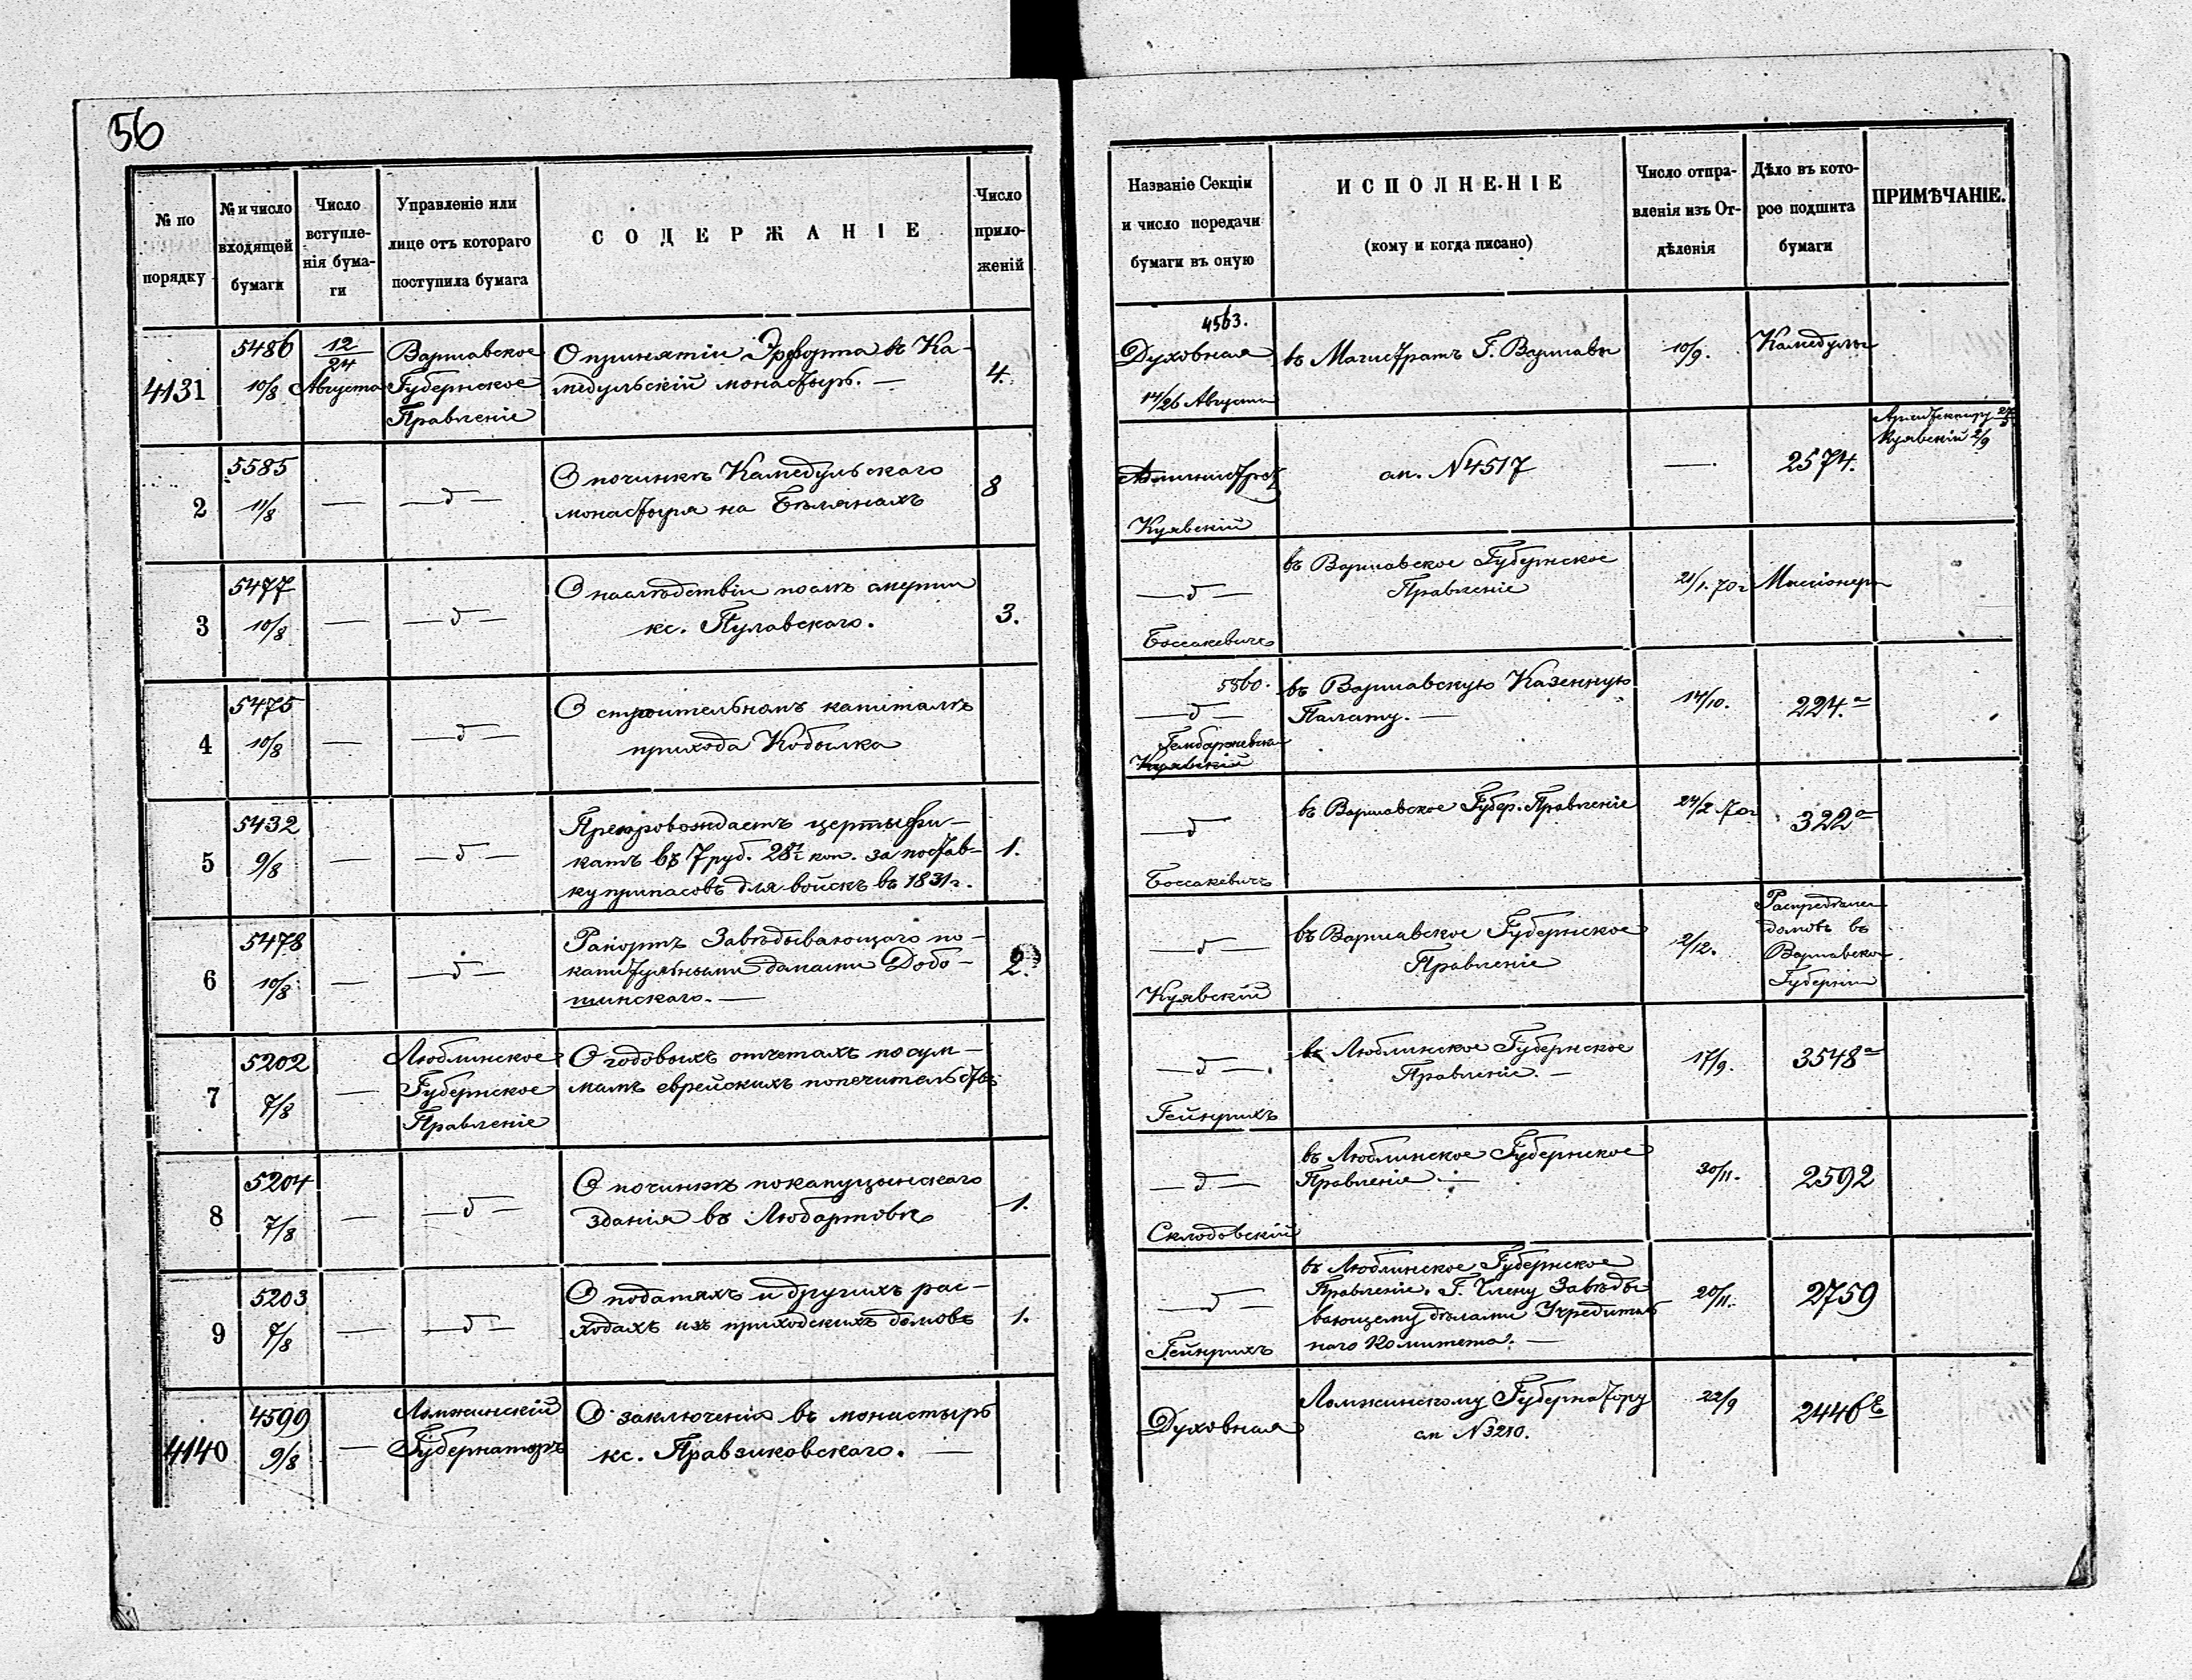 56
№ по
порядку
№ и число
входящей
бумаги
Число
вступле-
нія бума-
ги
Управленіе или
лице отъ котораго
поступила бумага
СОДЕРЖАНІЕ
Число
прило-
женій
4131
5486
10/8
12/24
Августа
Варшавское
Губернское
Правленіе
О принятіи Эрфорта въ Ка-
медульскій монастырь. —
4.
2
5585
11/8
—
— д —
О починкѣ Камедульскаго
монастыря на Бѣлянахъ
8
3
5477
10/8
—
— д —
О наслѣдствіи послѣ смерти
кс. Пулавскаго.
3.
4
5475
10/8
—
— д —
О строительномъ капиталѣ
прихода Кобылка
5
5432
9/8
—
— д —
Препровождаетъ цертыфи-
катъ въ 7 руб. 28 коп. за постав-
ку припасовъ для войскъ въ 1831 г.
1.
6
5478
10/8
—
— д —
Рапортъ Завѣдывающаго по-
капитульными домами Добо-
шинскаго. —
2.
7
5202
7/8
—
Люблинское
Губернское
Правленіе
О годовыхъ отчетахъ по сум-
мамъ еврейскихъ попечительствъ
8
5204
7/8
—
— д —
О починкѣ покапуцынскаго
зданія въ Любартовѣ
1.
9
5203
7/8
—
— д —
О податяхъ и другихъ рас-
ходахъ изъ приходскихъ домовъ
1.
4140
4599
9/8
—
Ломжинскій
Губернаторъ
О заключеніи въ монастырь
кс. Правдзиковскаго. —
Названіе Секціи
и число передачи
бумаги въ оную
ИСПОЛНЕНІЕ
(кому и когда писано)
Число отпра-
вленія изъ От-
дѣленія
Дѣло въ кото-
рое подшита
бумаги
ПРИМѢЧАНІЕ.
4563.
Духовная
14/26 Августа
въ Магистратъ Г. Варшавы
10/9.
Камедулы
Администрат
Куявскій
ап. N 4517
—
2574.
Куявскій 2/9
— д —
Боссакевичъ
въ Варшавское Губернское
Правленіе
21/1. 70 г
Миссіонеры
5860.
— д —
Гембаржевскій
Куявскій
въ Варшавскую Казенную
Палату. —
14/10.
224. а
— д
Боссакевичъ
въ Варшавское Губер. Правленіе
24/2 70 г
322 а
— д —
Куявскій
въ Варшавское Губернское
Правленіе
2/12.
домовъ въ
Варшавской
Губерніи
— д — .
Гейнрихъ
въ Люблинское Губернское
Правленіе. —
17/9.
3548 а
— д —
Склодовскій
въ Люблинское Губернское
Правленіе. —
30/11.
2592
— д —
Гейнрихъ
въ Люблинское Губернское
Правленіе. Г. Члену Завѣды
вающему дѣлами Учредитель
наго Комитета. —
20/11.
2759
Духовная
Ломжинскому Губернатору
ап N 3210.
22/9
2446